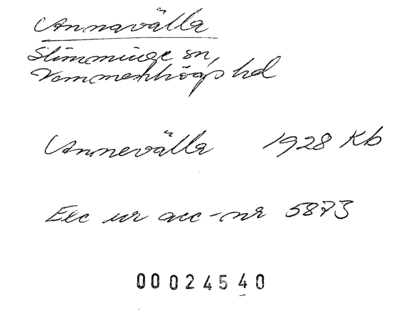 Annavälla
Slimminge sn,
Vemmenhögs hd
Annevälla 1928 Kb
Exc ur acc-nr 5873
00024540